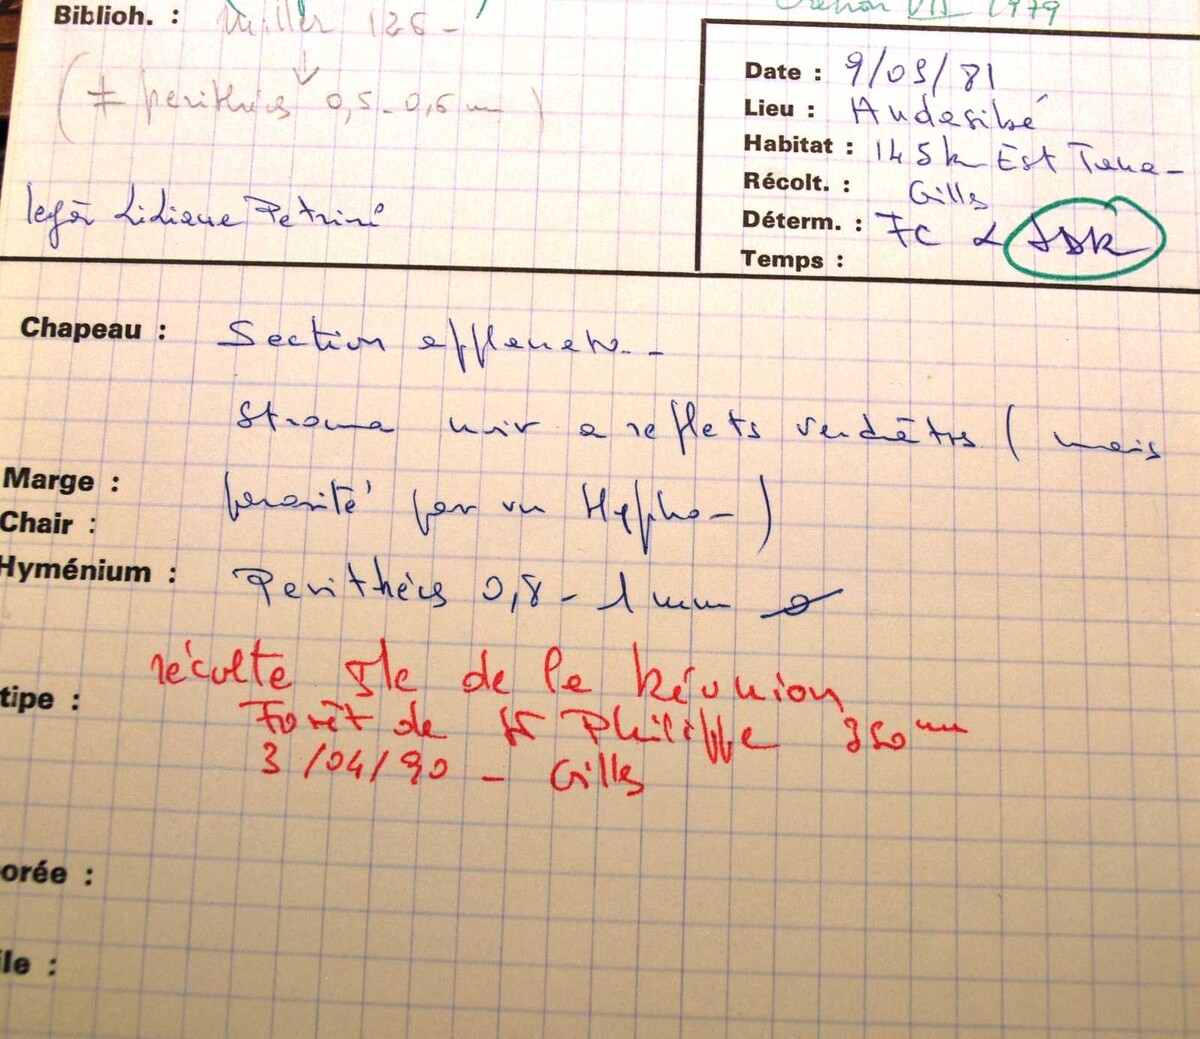 Biblioh. : Miller 126 -
VII 1979
(≠ perithèces 0,5 - 0,6 mm)
Date : 9/03/81
Lieu : Andasibé
Habitat : 145 k Est Tana -
Récolt. : Gilles
legit Liliane Petrini
Déterm. : FC &
Temps :
Chapeau : Section
Stroma noir a reflets verdâtres ( mais
Marge :
parasité par un Hypho - )
Chair :
Hyménium : Perithèces 0,8 - 1 mm ø
récolte Ile de la Réunion
tipe :
Forêt de St Philippe 350 m
3/04/90 - Gilles
orée :
ile :